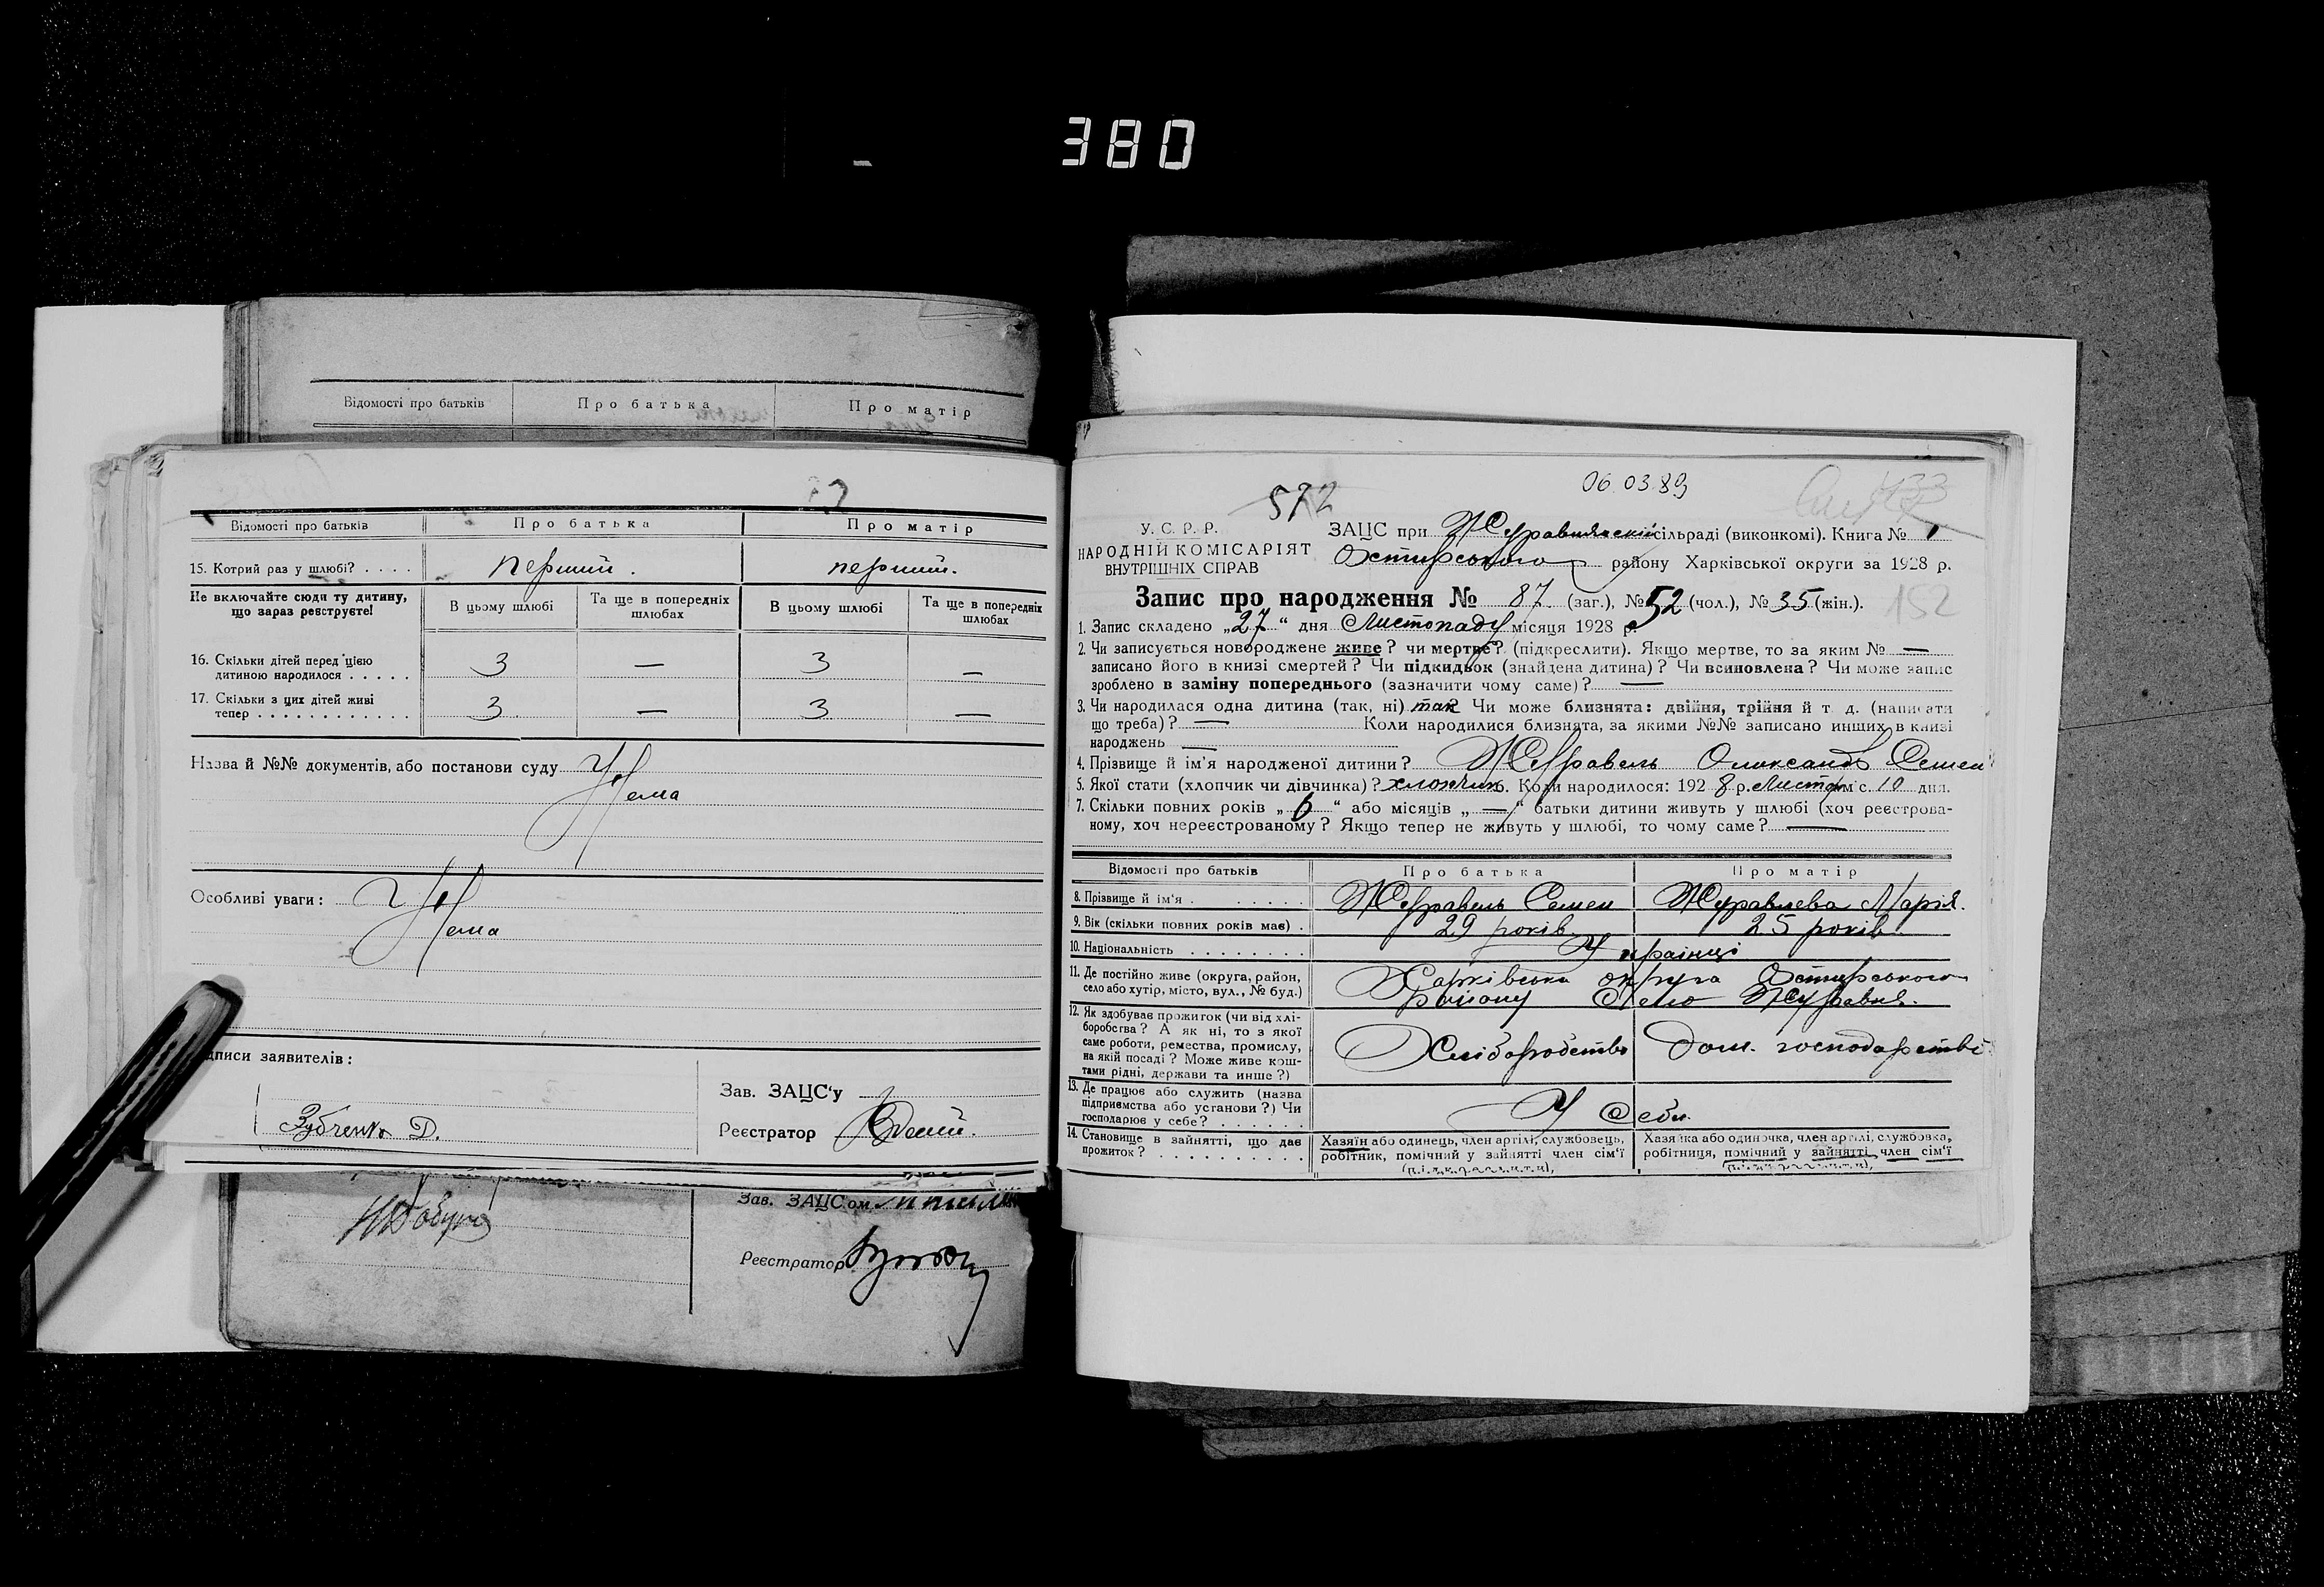 380
Відомості про батьків Про батька Про матір
Відомості про батьків Про батька Про матір
15. Котрий раз у шлюбі? . . . . перший. перший.
Не включайте сюди ту дитину, що зараз реєструєте!
В цьому шлюбі Та ще в попередніх шлюбах В цьому шлюбі Та ще в попередніх шлюбах
16. Скільки дітей перед цією
дитиною народилося . . . . . 3 — 3 —
17. Скільки з цих дітей живі
тепер . . . . . . . . . . . . 3 — 3 —
Назва й №№ документів, або постанови суду Нема
Особливі уваги: Нема
дписи заявителів:
Зав. ЗАЦС'у
Зубченко Д.
Реєстратор
Зав. ЗАЦС'ом
Реєстратор
572
06.03.89
У. С. Р. Р.
НАРОДНІЙ КОМІСАРІЯТ
ВНУТРІШНІХ СПРАВ
ЗАЦС при Журавнянській сільраді (виконкомі). Книга № 1
Охтирського району Харківської округи за 1928 р.
Запис про народження № 87. (заг.), № 52 (чол.), № 35 (жін.). 152
1. Запис складено „27“ дня Листопаду місяця 1928 р.
2. Чи записується новороджене живе? чи мертве? (підкреслити). Якщо мертве, то за яким № —
записано його в книзі смертей? Чи підкидьок (знайдена дитина)? Чи всиновлена? Чи може запис
зроблено в заміну попереднього (зазначити чому саме)? —
3. Чи народилася одна дитина (так, ні) так Чи може близнята: двійня, трійня й т. д. (написати
що треба)? — Коли народилися близнята, за якими №№ записано инших в книзі
народжень —
4. Прізвище й ім'я народженої дитини? Журавель Олександ Семен
5. Якої стати (хлопчик чи дівчинка)? хлопчик. Коли народилося: 1928 р. Листоп м'с. 10 дня.
7. Скільки повних років „6“ або місяців „—“ батьки дитини живуть у шлюбі (хоч реєстрова-
ному, хоч нереєстрованому? Якщо тепер не живуть у шлюбі, то чому саме? —
Відомості про батьків Про батька Про матір
8. Прізвище й ім'я . . . . . . . Журавель Семен Журавлева Марія.
9. Вік (скільки повних років має) . 29 років. 25 років.
10. Національність . . . . . . . . Українці
11. Де постійно живе (округа, район,
село або хутір, місто, вул., № буд.) Харківська округа Охтирського
району Село Журавне.
12. Як здобуває прожиток (чи від хлі-
боробства? А як ні, то з якої
саме роботи, ремества, промислу,
на якій посаді? Може живе кош-
тами рідні, держави та инше?)
Хліборобство дом. господарстві
13. Де працює або служить (назва
підприємства або установи?) Чи
господарює у себе? . . . . . .
У Себе.
14. Становище в зайнятті, що дає
прожиток? . . . . . . . . . .
Хазяїн або одинець, член артілі, службовець,
робітник, помічний у зайнятті член сім'ї
(підкреслити),
Хазяйка або одиночка, член артілі, службовка,
робітниця, помічний у зайнятті член сім'ї
(підкреслити),